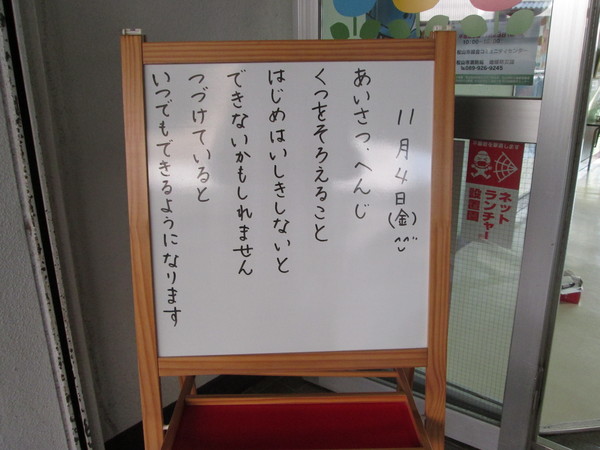 11月4日(金)
あいさつ、へんじ
くつをそろえること
はじめはいしきしないと
できないかもしれません
つづけていると
いつでもできるようになります
ネット
ランチャー
設置園